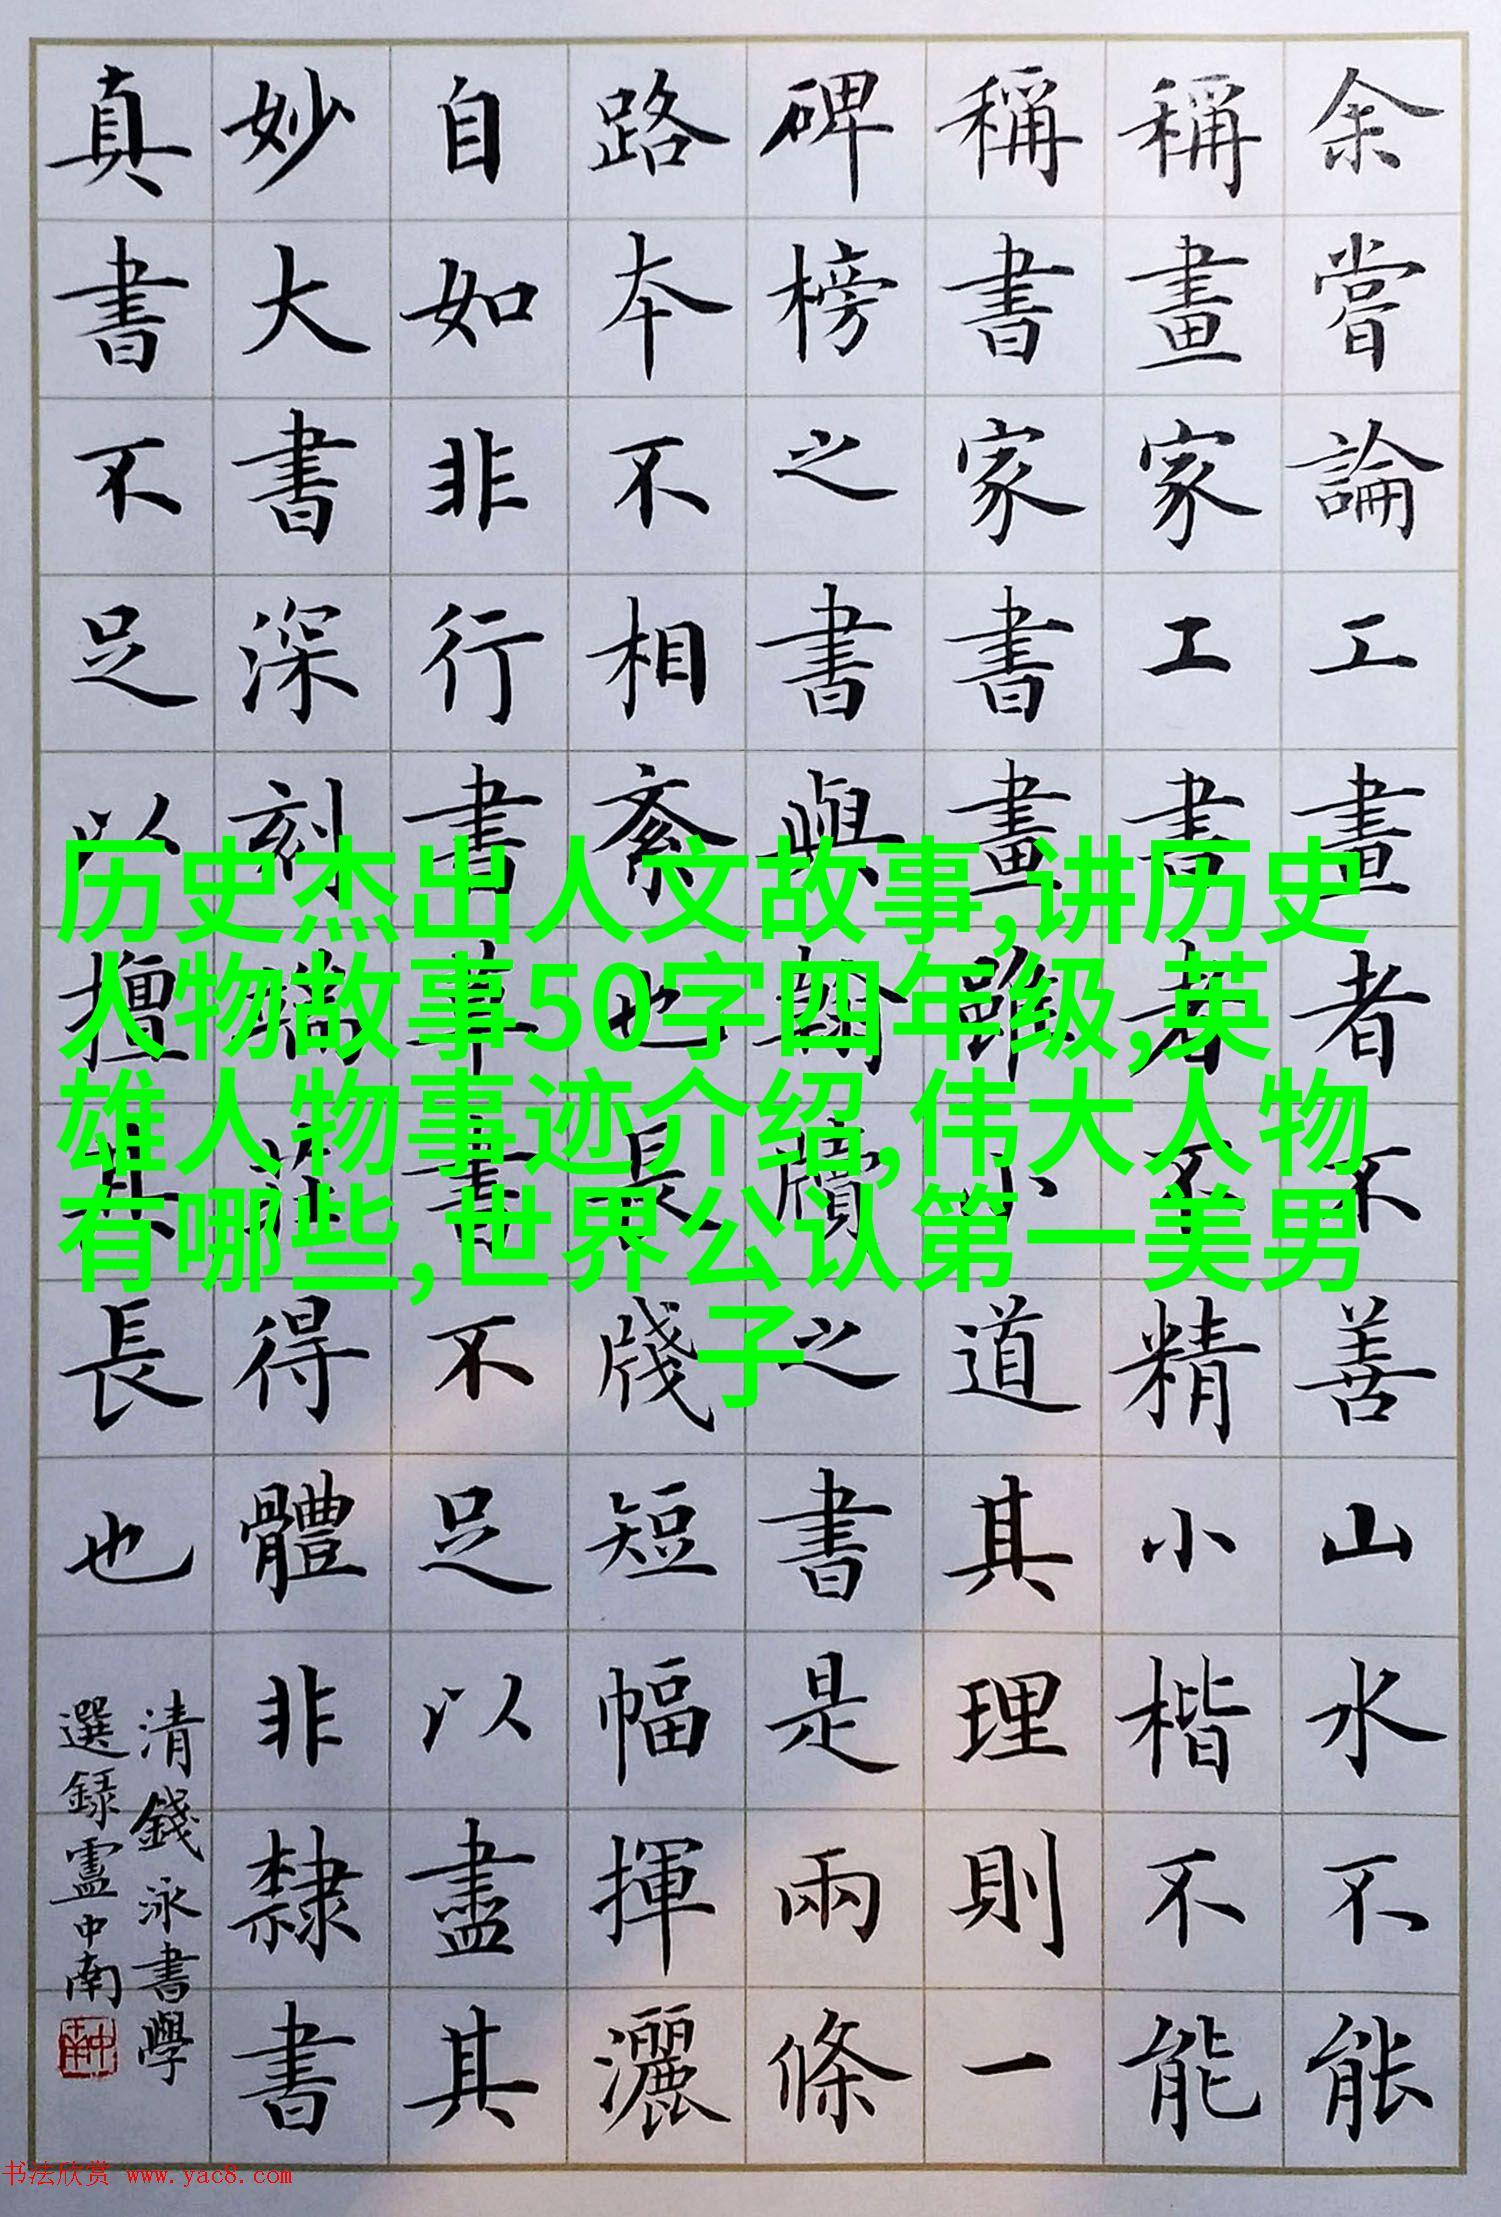 余嘗論工畫者不善山水不能
稱畫家工書者不精小楷不能
稱書家書畫雖小道其理則一
碑榜之書與翰牘之書是兩條
路本不相紊也長牋短幅揮灑
自如非行書草書不足以盡其
妙大書深刻端莊得體非隸書
真書不足以擅其長也
清錢泳書學
選録盧中南
历史杰出人文故事,讲历史
人物故事50字四年级,英
雄人物事迹介绍,伟大人物
有哪些,世界公认第一美男
子
书法欣赏 www.yac8.com